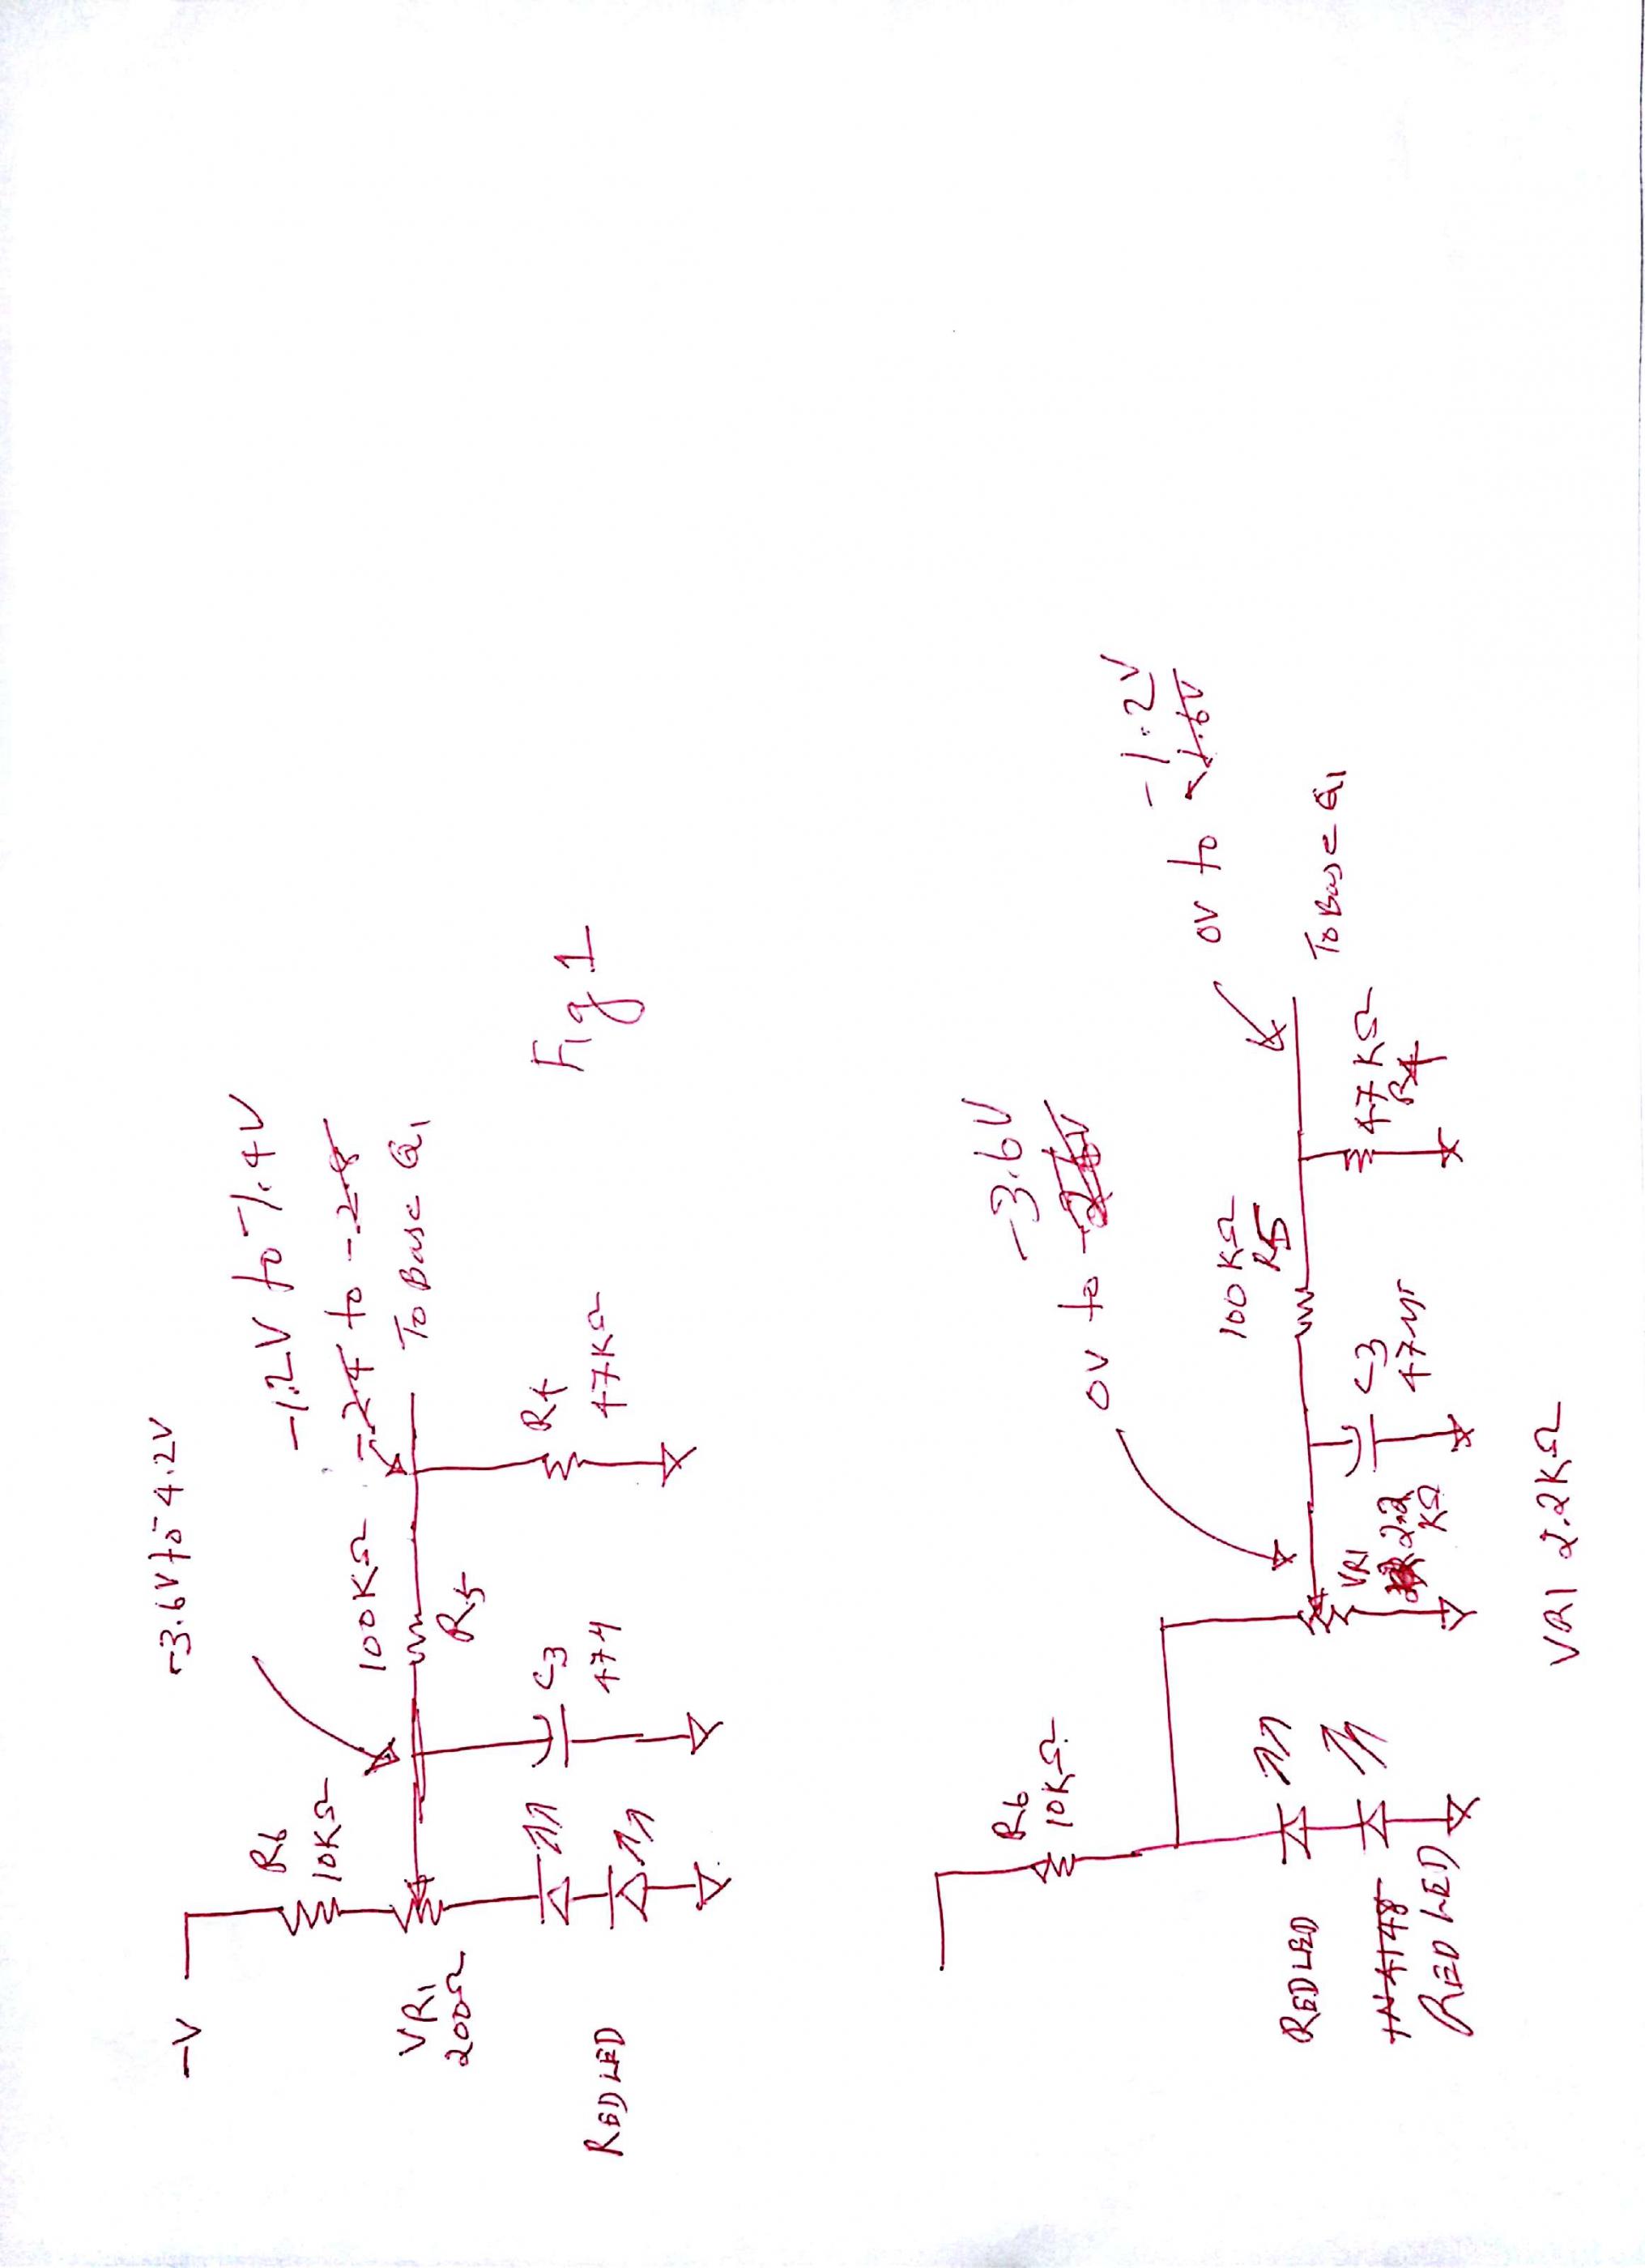 -3.6V to -4.2V
-1.2V to -1.4V
-2.4 to -2.8
-V
R6
10KΩ
100KΩ
To Base Q1
VR1
200Ω
R5
C3
47µ
R4
47KΩ
RED LED
Fig 1
-3.6V
0V to
-1.2V
0V to -1.6V
R6
10KΩ
100KΩ
R5
To Base Q1
RED LED
1N4148
RED LED
VR1
2.2
KΩ
C3
47µf
47KΩ
R4
VR1 2.2KΩ